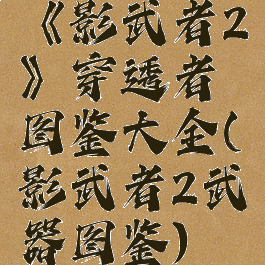 《影武者2
》穿透者
图鉴大全(
影武者2武
器图鉴)